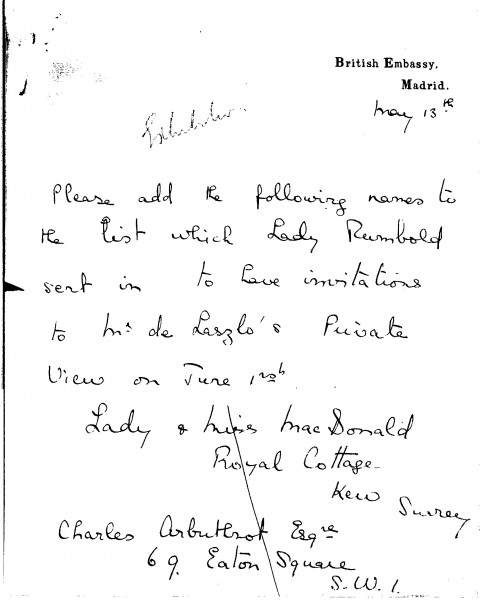 British Embassy,
Madrid.
May 13th
Please add the following names to
the list which Lady Rumbold
sent in to have invitations
to Mr de Laszlo's Private
View on June 1st
Lady & Miss MacDonald
Royal Cottage
Kew
Surrey
Charles Arbuthnot Esqre
69. Eaton Square
S.W.1.